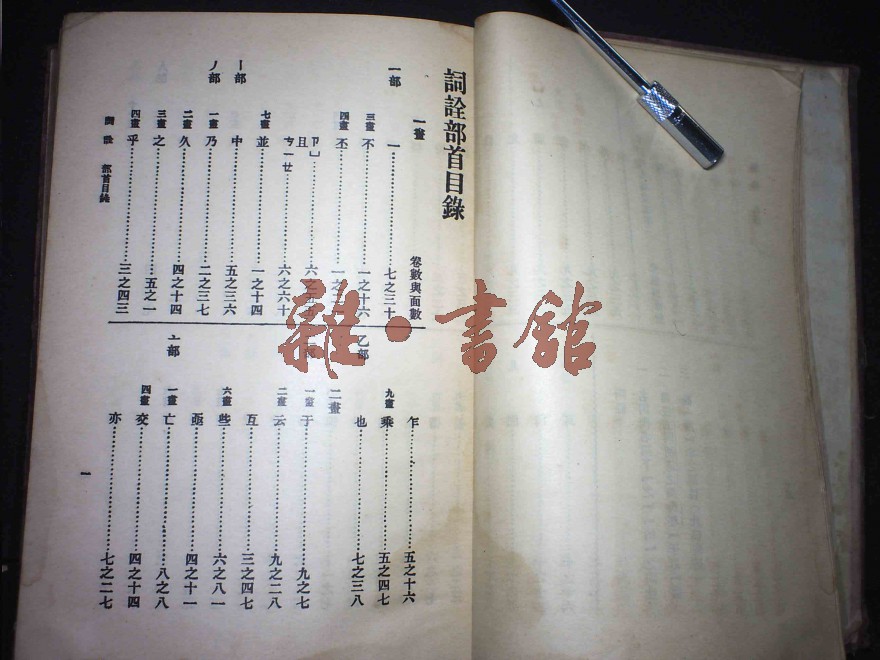 詞詮部首目錄
卷數與面數
一畫
一部
一……七之三十
三畫 不……一之十六
四畫 丕……一之
且
ㄗㄩ……六之
ㄘㄧㄝ……六之六十
七畫 並……一之十四
丨部
中……五之三六
丿部
一畫 乃……二之三七
二畫 久……四之十四
三畫 之……五之一
四畫 乎……三之四三
乍……五之十六
九畫 乘……五之四七
乙部
也……七之三八
二畫
一畫 于……九之七
二畫 云……九之二八
互……三之四七
六畫 些……六之八一
亟……四之十一
亠部
一畫 亡……八之八
四畫 交……四之十四
亦……七之二七
詞詮 部首目錄
一
雜·書館